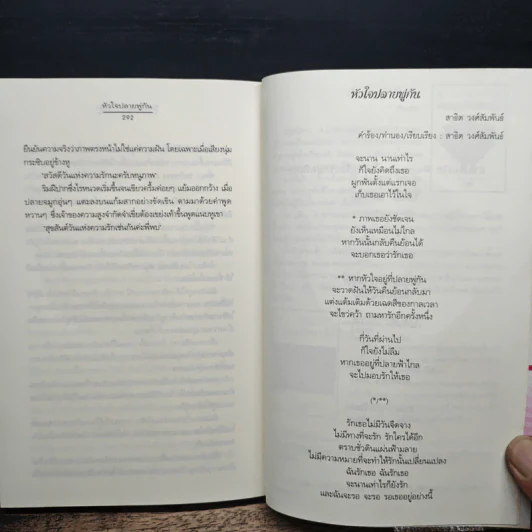 หัวใจปลายพู่กัน
292
ยืนยันความจริงว่าภาพตรงหน้าไม่ใช่แค่ความฝัน โดยเฉพาะเมื่อเสียงนุ่ม
กระซิบอยู่ข้างหู
"สวัสดีวันแห่งความรักนะครับหนูภาพ"
ริมฝีปากซึ่งไรหนวดเริ่มขึ้นจนเขียวครึ้มค่อยๆ แย้มออกกว้าง เมื่อ
ปลายจมูกอุ่นๆ แตะลงบนแก้มสากอย่างขัดเขิน ตามมาด้วยคำพูด
หวานๆ ซึ่งเจ้าของความสูงจำกัดจำเขี่ยต้องเขย่งเท้าขึ้นพูดแนบหูเขา
"สุขสันต์วันแห่งความรักเช่นกันค่ะพี่พบ"
หัวใจปลายพู่กัน
สาธิต วงศ์สัมพันธ์
คำร้อง/ทำนอง/เรียบเรียง : สาธิต วงศ์สัมพันธ์
จะนาน นานเท่าไร
ก็ใจยังคิดถึงเธอ
ผูกพันตั้งแต่แรกเจอ
เก็บเธอเอาไว้ในใจ
* ภาพเธอยังชัดเจน
ยังเห็นเหมือนไม่ไกล
หากวันนั้นกลับคืนย้อนได้
จะบอกเธอว่ารักเธอ
** หากหัวใจอยู่ที่ปลายพู่กัน
จะวาดฝันให้วันคืนย้อนกลับมา
แต่งแต้มเติมด้วยเฉดสีของกาลเวลา
จะไขว่คว้า ถามหารักอีกครั้งหนึ่ง
กี่วันที่ผ่านไป
ก็ใจยังไม่ลืม
หากเธออยู่ที่ปลายฟ้าไกล
จะไปมอบรักให้เธอ
(*/**)
รักเธอไม่มีวันจืดจาง
ไม่มีทางที่จะรัก รักใครได้อีก
ตราบชั่วดินแผ่นฟ้ามลาย
ไม่มีความหมายที่จะทำให้รักนั้นเปลี่ยนแปลง
ฉันรักเธอ ฉันรักเธอ
จะนานเท่าไรก็ยังรัก
และฉันจะรอ จะรอ รอเธออยู่อย่างนี้